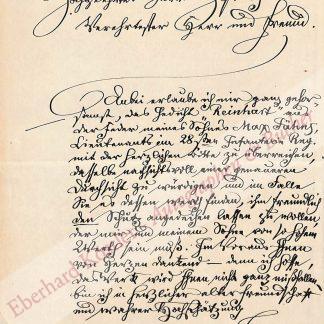 Hochgeehrter Herr
Verehrtester Herr und Freund.
Anbei erlaube ich mir ganz gehor-
samst, das Gedicht "Reinhart" aus
der Feder meines Sohnes Max Jähns,
Lieutenants im 28sten Infanterie Reg.
mit der herzlichen Bitte zu überreichen,
dasselbe nachsichtsvoll einer genaueren
Durchsicht zu würdigen und im Falle
Sie es dessen werth finden, ihm freundlich
den Schutz angedeihen lassen zu wollen
der mir und meinem Sohne von so hohem
Werth sein muß. Im Voraus Ihnen
von Herzen dankend — denn ich hoffe,
das Werk wird Ihnen nicht ganz mißfallen
bin ich in herzlicher alter Freundschaft
und wahrer Hochschätzung
Eberhard